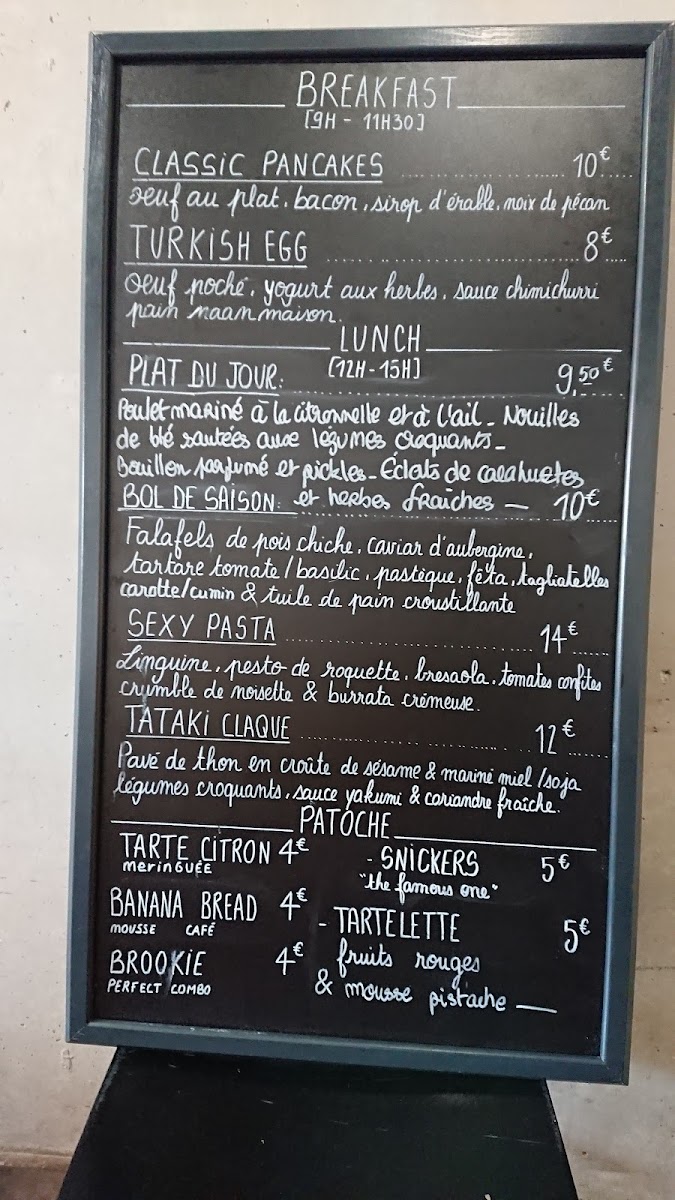 BREAKFAST
[9H - 11H30]
CLASSIC PANCAKES ........ 10€
oeuf au plat, bacon, sirop d'érable, noix de pécan
TURKISH EGG ........ 8€
oeuf poché, yogurt aux herbes, sauce chimichurri
pain naan maison.
LUNCH
[12H-15H]
PLAT DU JOUR: 9,50€
Poulet mariné à la citronnelle et à l'ail - Nouilles
de blé sautées avec légumes croquants -
Bouillon parfumé et pickles - Éclats de cacahuetes
et herbes fraîches —
BOL DE SAISON: 10€
Falafels de pois chiche, caviar d'aubergine,
tartare tomate/basilic, pastèque, fêta, tagliatelles
carotte/cumin & tuile de pain croustillante
SEXY PASTA ........ 14€
Linguine, pesto de roquette, bresaola, tomates confites
crumble de noisette & burrata crémeuse.
TATAKI CLAQUE ........ 12€
Pavé de thon en croûte de sésame & mariné miel/soja
légumes croquants, sauce yakumi & coriandre fraîche.
PATOCHE
TARTE CITRON 4€
MERINGUÉE
BANANA BREAD 4€
MOUSSE CAFÉ
BROOKIE 4€
PERFECT COMBO
- SNICKERS 5€
"the famous one"
- TARTELETTE 5€
fruits rouges
& mousse pistache —